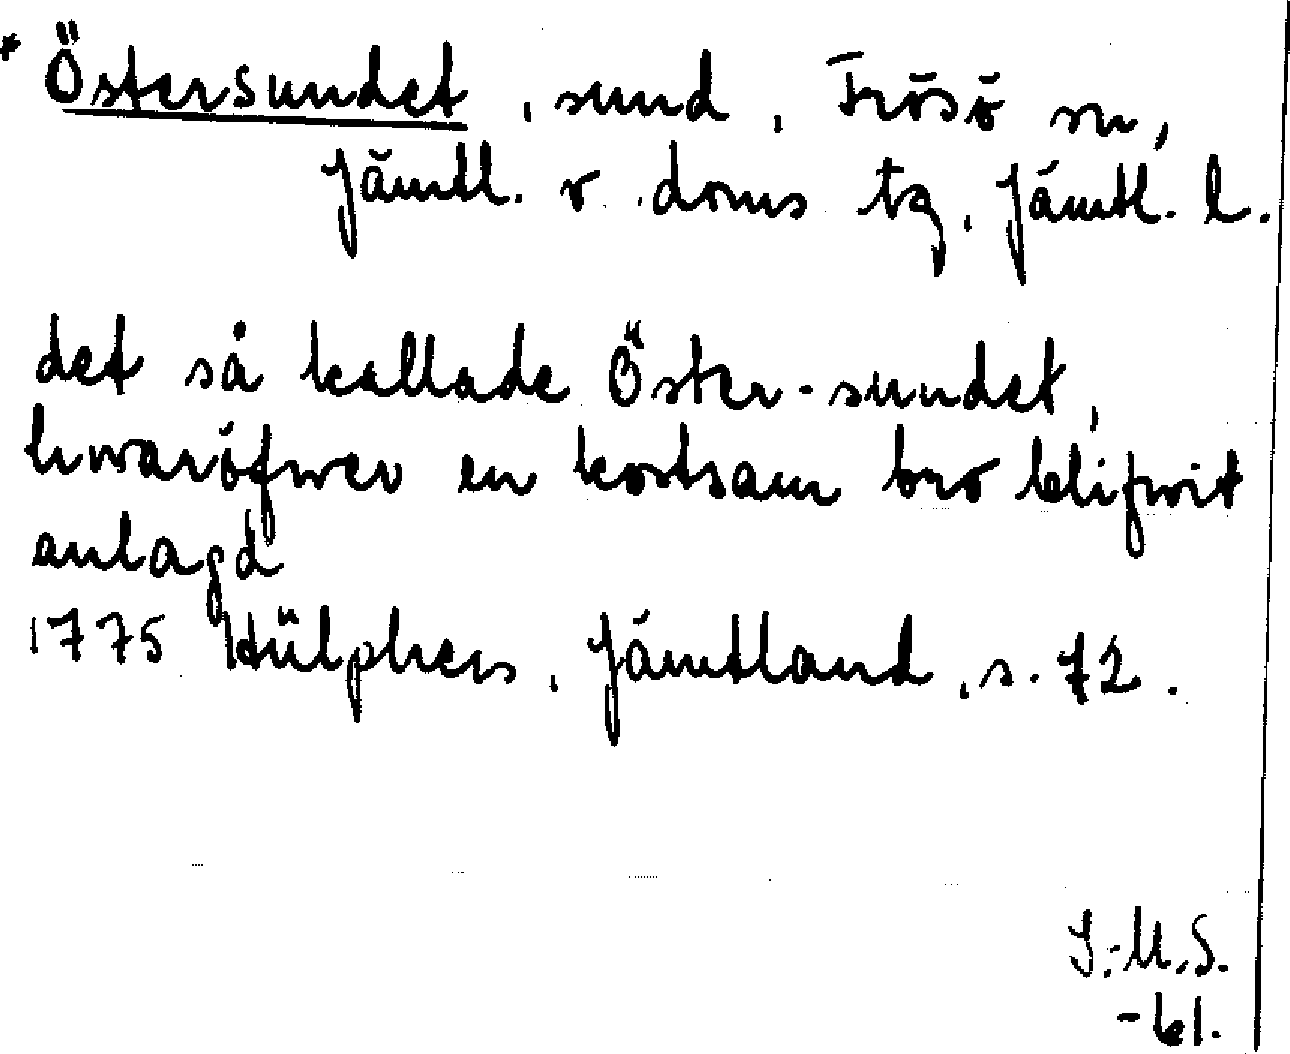 * Östersundet, sund, Frösö sn,
Jämtl. v. doms tg, Jämtl. l.
det så kallade Öster-sundet,
hwaröfwer en kostsam bro blifwit
anlagd
1775 Hülphers, Jämtland, s. 72.
I.-M.S.
-61.